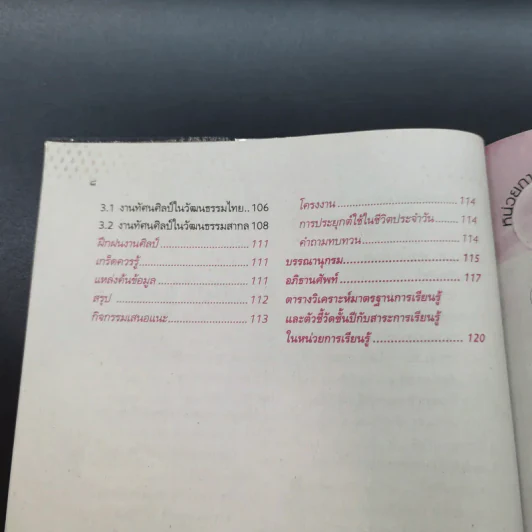 ๘
3.1 งานทัศนศิลป์ในวัฒนธรรมไทย.. 106
3.2 งานทัศนศิลป์ในวัฒนธรรมสากล 108
ฝึกฝนงานศิลป์ 111
เกร็ดควรรู้ 111
แหล่งค้นข้อมูล 111
สรุป 112
กิจกรรมเสนอแนะ 113
โครงงาน 114
การประยุกต์ใช้ในชีวิตประจำวัน 114
คำถามทบทวน 114
บรรณานุกรม 115
อภิธานศัพท์ 117
ตารางวิเคราะห์มาตรฐานการเรียนรู้
และตัวชี้วัดชั้นปีกับสาระการเรียนรู้
ในหน่วยการเรียนรู้ 120